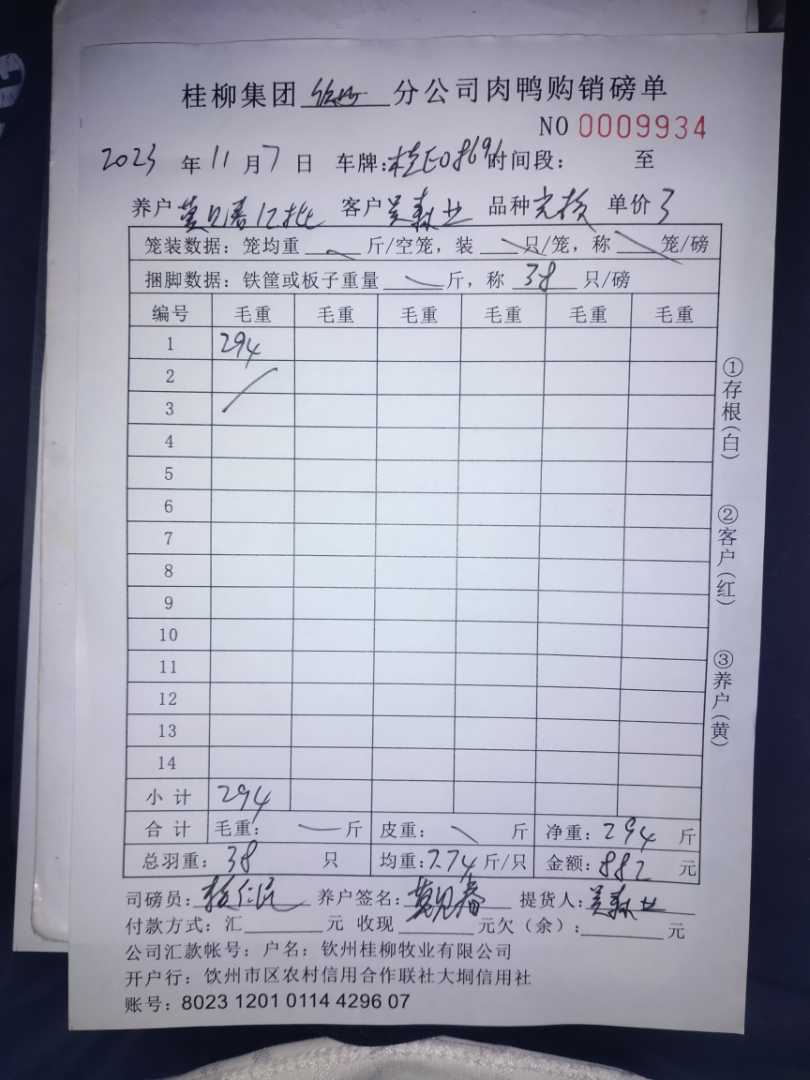 桂柳集团 分公司肉鸭购销磅单
NO 0009934
2023 年 11 月 7 日 车牌:桂E08696 时间段: 至
养户 客户 吴森 品种 单价 3
笼装数据: 笼均重 斤/空笼, 装 只/笼, 称 笼/磅
捆脚数据: 铁筐或板子重量 斤, 称 38 只/磅
编号 毛重 毛重 毛重 毛重 毛重 毛重
1 294
2
3
4
5
6
7
8
9
10
11
12
13
14
小计 294
合计 毛重: 斤 皮重: 斤 净重: 294 斤
总羽重: 38 只 均重: 7.74 斤/只 金额: 882 元
司磅员: 养户签名: 提货人: 吴森
付款方式: 汇 元 收现 元欠(余): 元
公司汇款帐号: 户名: 钦州桂柳牧业有限公司
开户行: 饮州市区农村信用合作联社大垌信用社
账号: 8023 1201 0114 4296 07
①存根(白)
②客户(红)
③养户(黄)